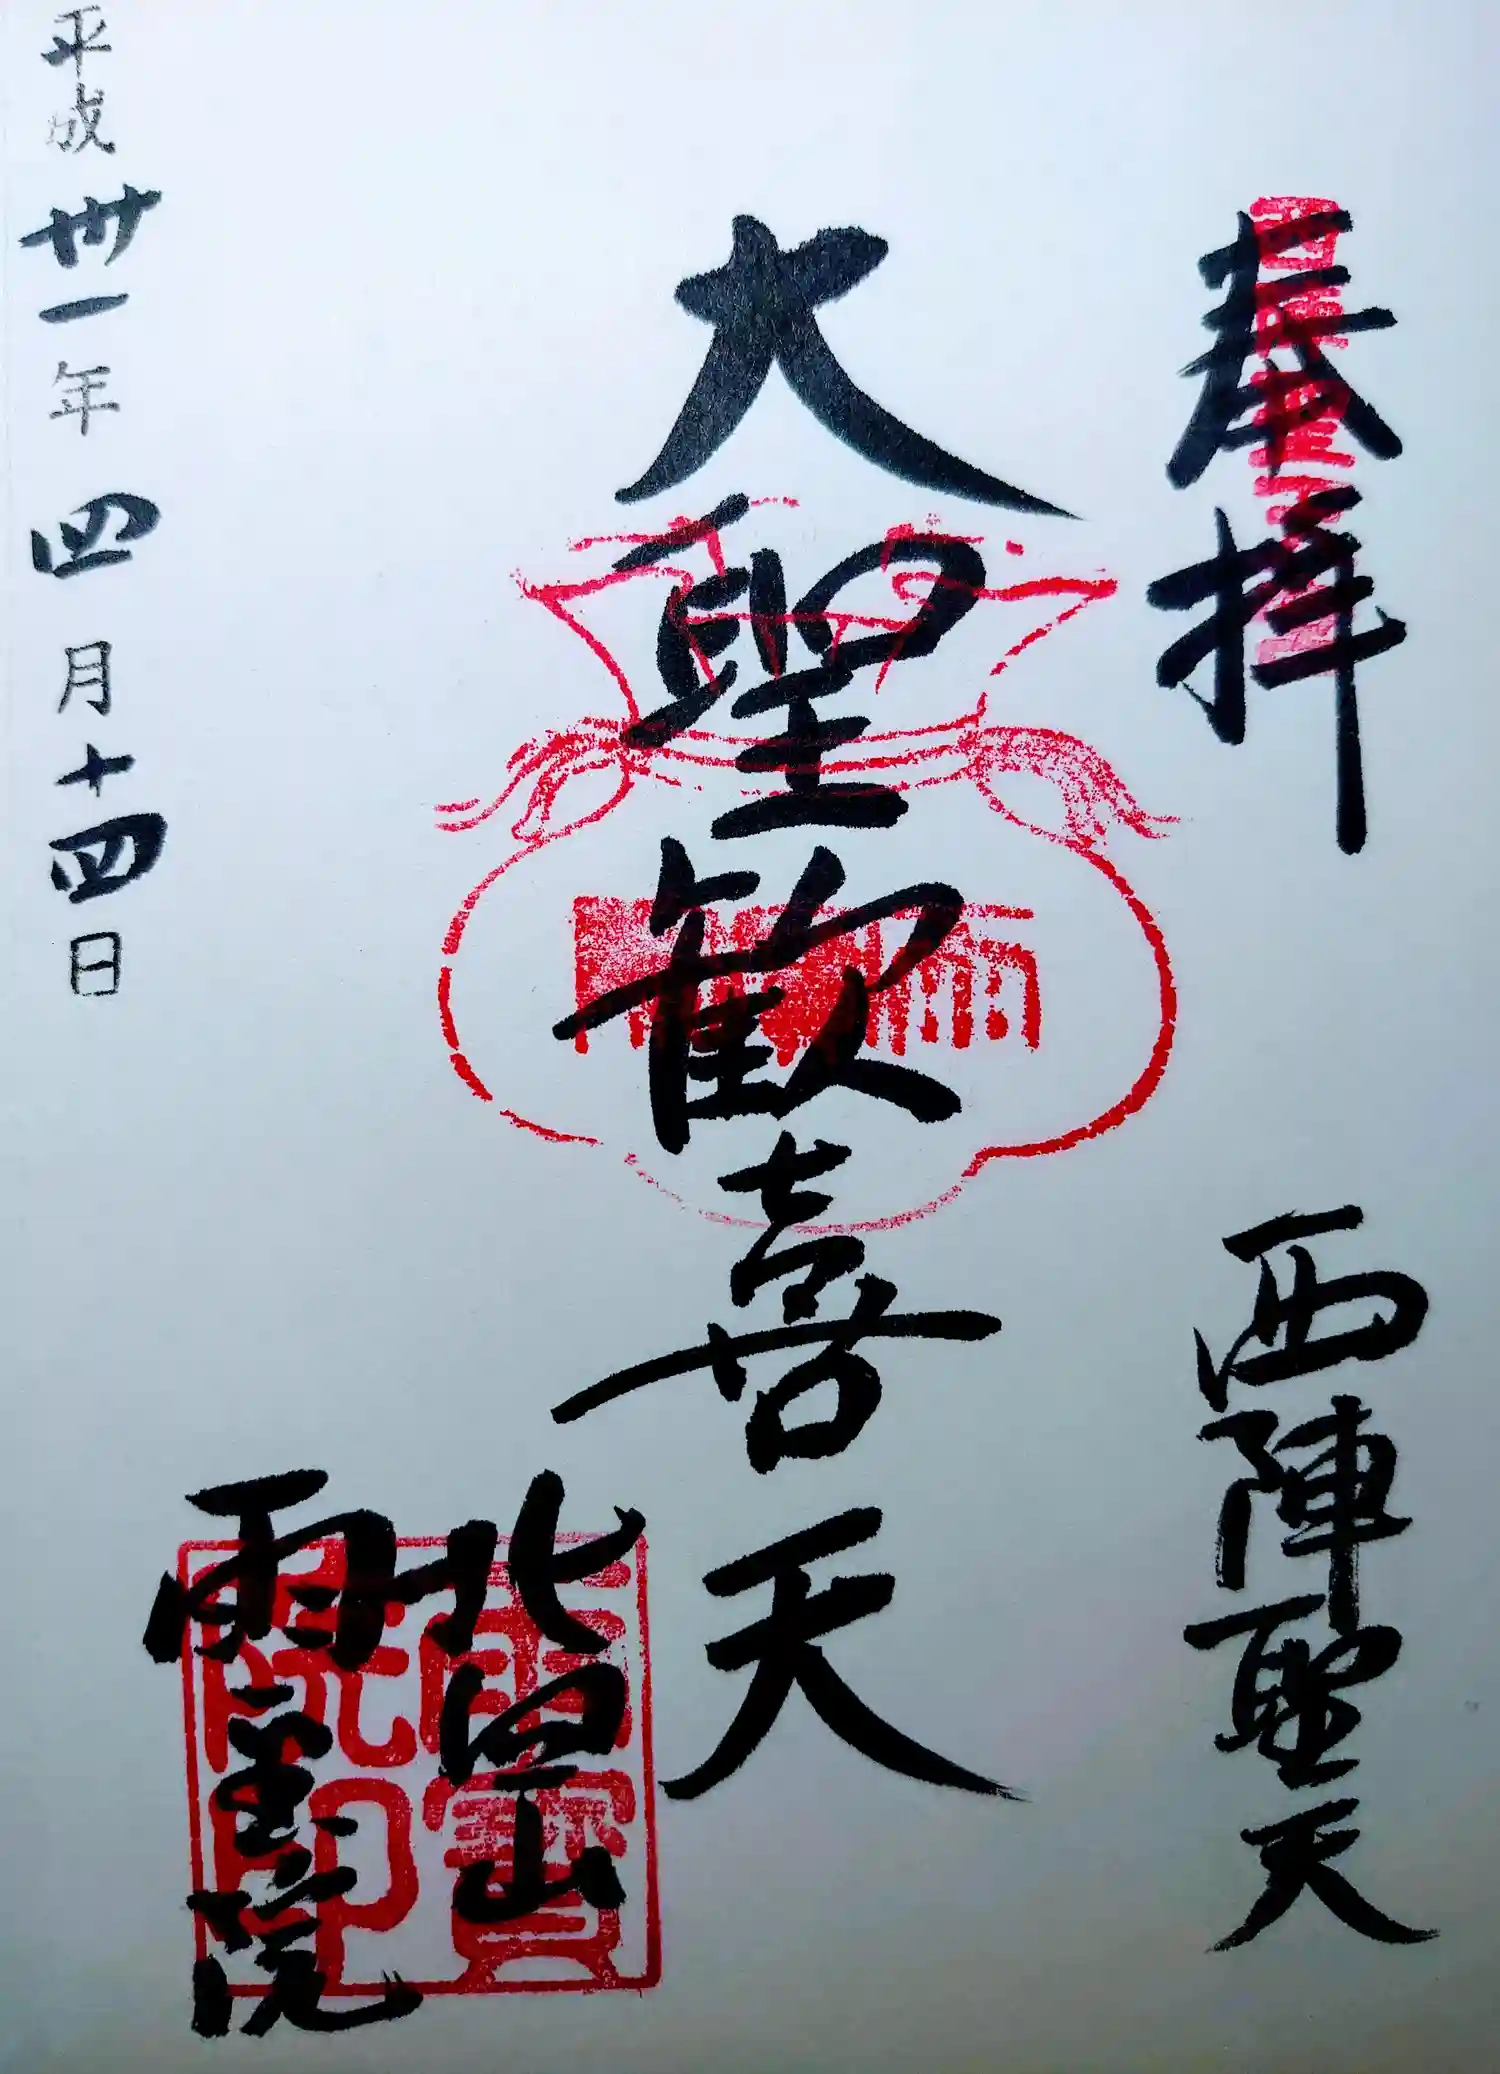 奉拝
西陣聖天
大聖歓喜天
北向山
雨宝院
平成卅一年四月十四日
雨寶院印